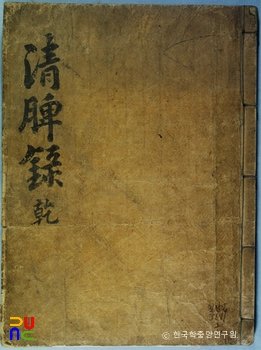 清脾録 乾
© 한국학중앙연구원